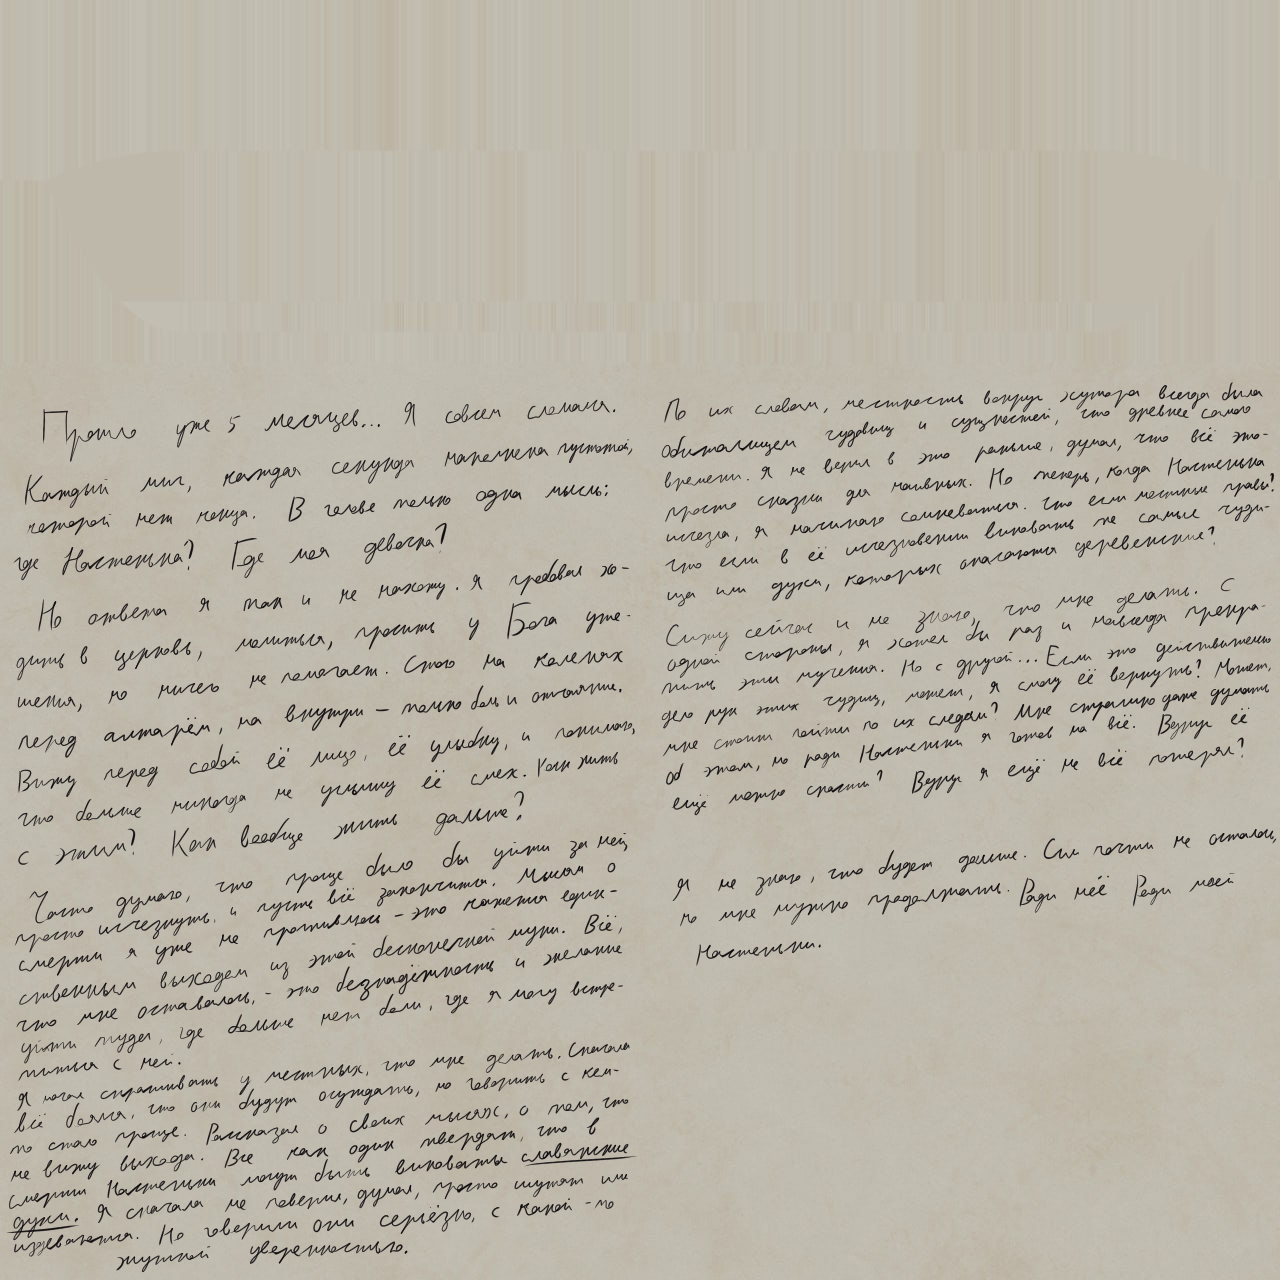 Прошло уже 5 месяцев... Я совсем сломался.
Каждый миг, каждая секунда наполнена пустотой,
которой нет конца. В голове только одна мысль:
где Настенька? Где моя девочка?
Но ответа я так и не нахожу. Я пробовал хо-
дить в церковь, молиться, просить у Бога уте-
шения, но ничего не помогает. Стою на коленях
перед алтарём, на внутри – только боль и отчаяние.
Вижу перед собой её лицо, её улыбку, и понимаю,
что больше никогда не услышу её смех. Как жить
с этим? Как вообще жить дальше?
Часто думаю, что проще было бы уйти за ней,
просто исчезнуть, и пусть всё закончится. Мысли о
смерти я уже не противлюсь – это кажется един-
ственным выходом из этой бесконечной муки. Всё,
что мне оставалось, – это безнадёжность и желание
уйти туда, где больше нет боли, где я могу встре-
титься с ней.
Я начал спрашивать у местных, что мне делать. Сначала
всё боялся, что они будут осуждать, но говорить с кем-
то стало проще. Рассказал о своих мыслях, о том, что
не вижу выхода. Все как один твердят, что в
смерти Настеньки могут быть виноваты славянские
духи. Я сначала не поверил, думал, просто шутят или
издеваются. Но говорили они серьёзно, с какой-то
жуткой уверенностью.
По их словам, местность вокруг хутора всегда была
обиталищем чудовищ и сущностей, что древнее самого
времени. Я не верил в это раньше, думал, что всё это-
просто сказки для наивных. Но теперь, когда Настенька
исчезла, я начинаю сомневаться. Что если местные правы?
Что если в её исчезновении виноваты те самые чуди-
ща или духи, которых опасаются деревенские?
Сижу сейчас и не знаю, что мне делать. С
одной стороны, я хотел бы раз и навсегда прекра-
тить эти мучения. Но с другой... Если это действительно
дело рук этих чудищ, может, я смогу её вернуть? Может,
мне стоит пойти по их следам? Мне страшно даже думать
об этом, но ради Настеньки я готов на всё. Вдруг её
ещё можно спасти? Вдруг я ещё не всё потерял?
Я не знаю, что будет дальше. Сил почти не осталось,
но мне нужно продолжать. Ради неё Ради моей
Настеньки.